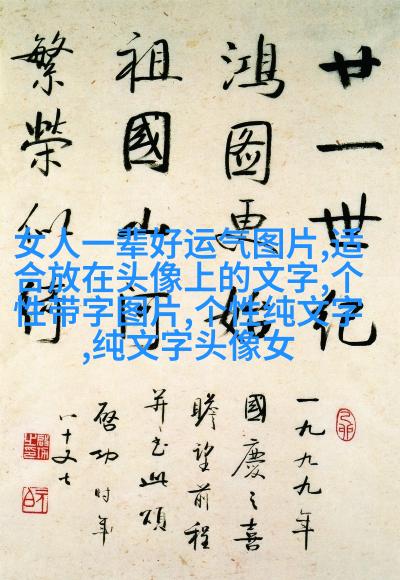 廿一世纪
鸿图更始
祖國山河
繁榮似绮
一九九九年
國慶之喜
瞻望前程
并书此颂
启功时年
八十又七
女人一辈好运气图片,适
合放在头像上的文字,个
性带字图片,个性纯文字
,纯文字头像女